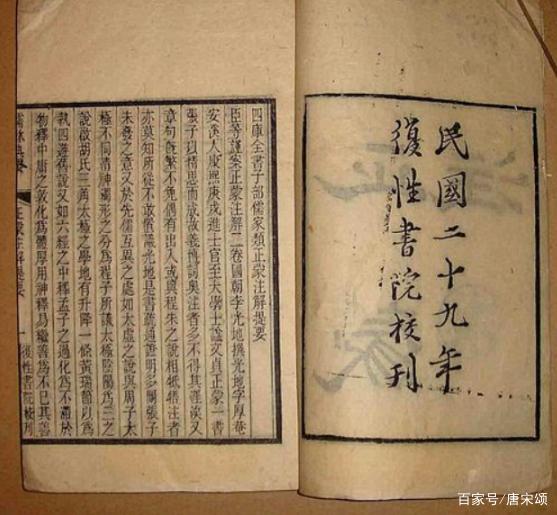 民國二十九年
復性書院校刊
四庫全書子部儒家類正蒙注解提要
臣等謹案正蒙注解二卷國朝李光地撰光地字厚菴
安溪人康熙庚戌進士官至大學士諡文貞正蒙一書
張子以精思而成故義博詞奧注者多不得其涯涘又
章句既繁不免偶有出入或與程朱之說相牴牾注者
亦莫知所從不敢置議光地是書疏通證明多闡張子
未發之意又於先儒互異之處如太虛之說與周子太
極不同清神濁形之分為程子所議太極陰陽為三之
說啟胡氏三角太極之學地有升降一條黃瑞節以為
執四遊舊說又如六經之中釋孟子之過化為不滯於
物釋中庸之敦化為體厚用神釋易繼善為不已其善
儒林典要
正蒙注解提要
一
復性書院校刊
百家号/唐宋颂